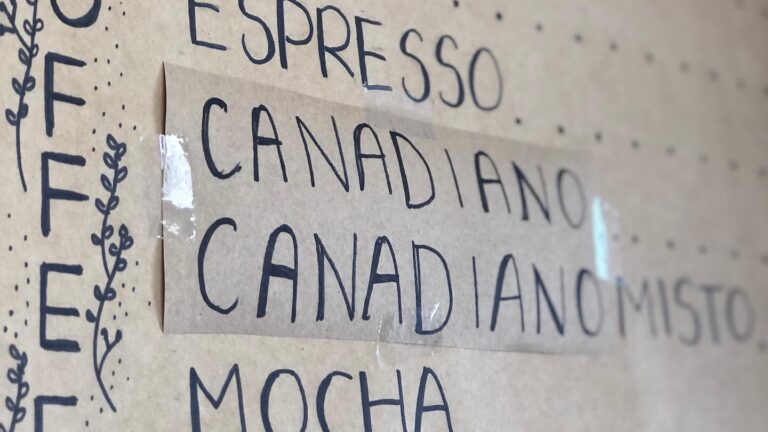 COFFEE
ESPRESSO
CANADIANO
CANADIANO MISTO
MOCHA